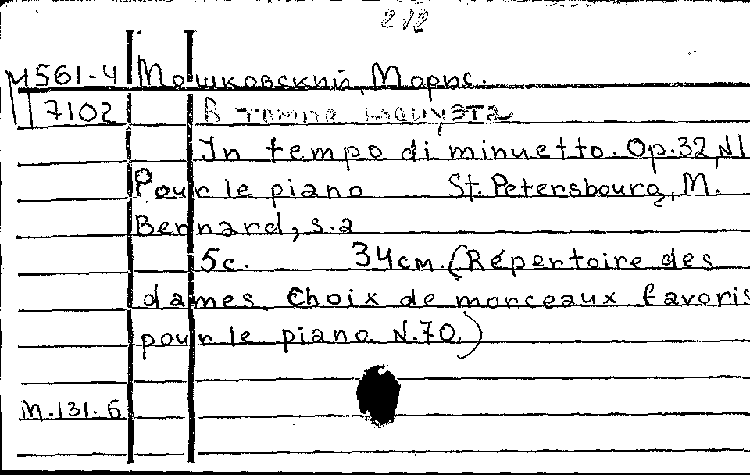 212
М561-4 Мошковский, Морис.
7102 В темпе менуэта
In tempo di minuetto. Op.32, N1
Pour le piano St. Petersbourg, M.
Bernard, s.a
5c. 34см. (Répertoire des
dames. Choix de morceaux favoris
pour le piano. N.70.)
М.131-б